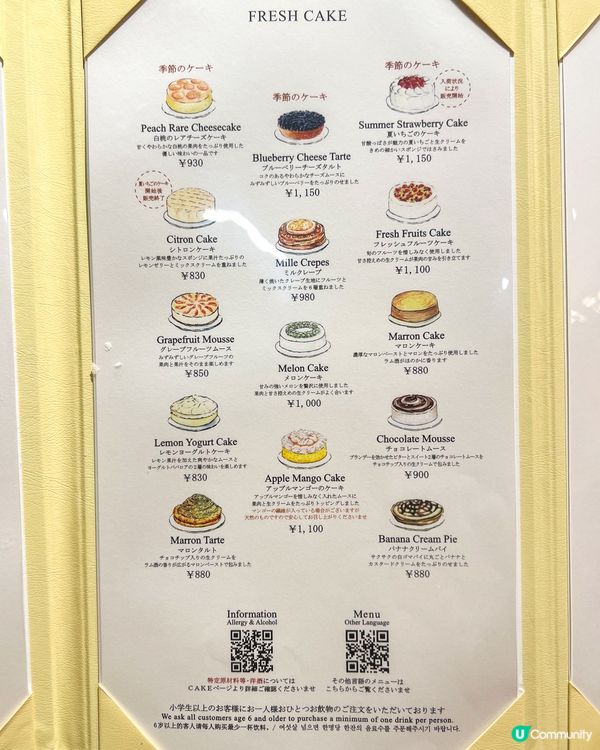 FRESH CAKE
季節のケーキ
Peach Rare Cheesecake
白桃のレアチーズケーキ
甘くやわらかな白桃の果肉をたっぷり使用した
優しい味わいの一品です
¥930
季節のケーキ
Blueberry Cheese Tarte
ブルーベリーチーズタルト
コクのあるやわらかなチーズムースに
みずみずしいブルーベリーをたっぷりのせました
¥1,150
季節のケーキ
入荷状況
により
販売開始
Summer Strawberry Cake
夏いちごのケーキ
甘酸っぱさが魅力の夏いちごと生クリームを
きめの細かいスポンジではさみました
¥1,150
夏いちごのケーキ
開始後
販売終了
Citron Cake
シトロンケーキ
レモン風味豊かなスポンジに果汁たっぷりの
レモンゼリーとミックスクリームを重ねました
¥830
Mille Crepes
ミルクレープ
薄く焼いたクレープ生地にフルーツと
ミックスクリームを6層重ねました
¥980
Fresh Fruits Cake
フレッシュフルーツケーキ
旬のフルーツを惜しみなく使用しました
甘さ控えめの生クリームが果肉の甘みを引き立てます
¥1,100
Grapefruit Mousse
グレープフルーツムース
みずみずしいグレープフルーツの
果肉と果汁をそのまま楽しめます
¥850
Melon Cake
メロンケーキ
甘みの強いメロンを贅沢に使用しました
果肉と甘さ控えめの生クリームがよく合います
¥1,000
Marron Cake
マロンケーキ
濃厚なマロンペーストとマロンをたっぷり使用しました
ラム酒がほのかに香ります
¥880
Lemon Yogurt Cake
レモンヨーグルトケーキ
レモン果汁を加えた爽やかなムースと
ヨーグルトババロアの2層の味わいを楽しめます
¥830
Apple Mango Cake
アップルマンゴーのケーキ
アップルマンゴーを惜しみなく入れたムースに
果肉と生クリームをたっぷりトッピングしました
マンゴーの繊維が入っている場合がございますが
天然のものですので安心してお召し上がりくださいませ
¥1,100
Chocolate Mousse
チョコレートムース
ブランデーを効かせたビターとスイート2層のチョコレートムースを
チョコチップ入りの生クリームで包みました
¥900
Marron Tarte
マロンタルト
チョコチップ入りの生クリームを
ラム酒の香りが広がるマロンペーストで包みました
¥880
Banana Cream Pie
バナナクリームパイ
サクサクの白ゴマパイに丸ごとバナナと
カスタードクリームをたっぷりのせました
¥880
Information
Allergy & Alcohol
特定原材料等・洋酒については
CAKEページより詳細ご確認くださいませ
Menu
Other Language
その他言語のメニューは
こちらからご覧くださいませ
小学生以上のお客様にお一人様おひとつお飲物のご注文をいただいております
We ask all customers age 6 and older to purchase a minimum of one drink per person.
6岁以上的客人请每人购买最少一杯饮料。/ 여섯살 넘으면 한명당 한잔의 음료수를 주문해주시기 바랍니다.
U Community